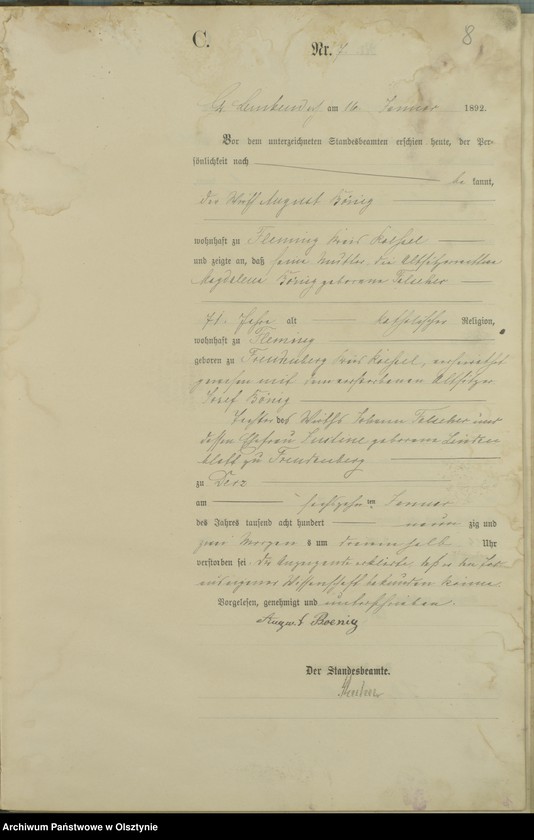 8
C.
Nr. 7
am 16 Januar 1892.
Vor dem unterzeichneten Standesbeamten erschien heute, der Per-
sönlichkeit nach
be kannt,
der Wirth August Bönig
wohnhaft zu Fleming Kreis Roessel
und zeigte an, daß seine Mutter, die
Magdalena Bönig geborene
71 Jahre alt katholischer Religion,
wohnhaft zu Fleming
geboren zu Freudenberg Kreis Roessel, verheirathet
gewesen mit dem verstorbenen Altsitzer
Josef Bönig
Tochter des Wirths Johann und
dessen Ehefrau Justine geborene
zu Freudenberg
zu Derz
am sechszehnten Januar
des Jahres tausend acht hundert neun zig und
zwei Morgens um Uhr
verstorben sei. Der Anzeigende erklärte, daß er den Tod
aus eigener Wissenschaft bekunden könne.
Vorgelesen, genehmigt und unterschrieben.
August Boenig
Der Standesbeamte.
Archiwum Państwowe w Olsztynie